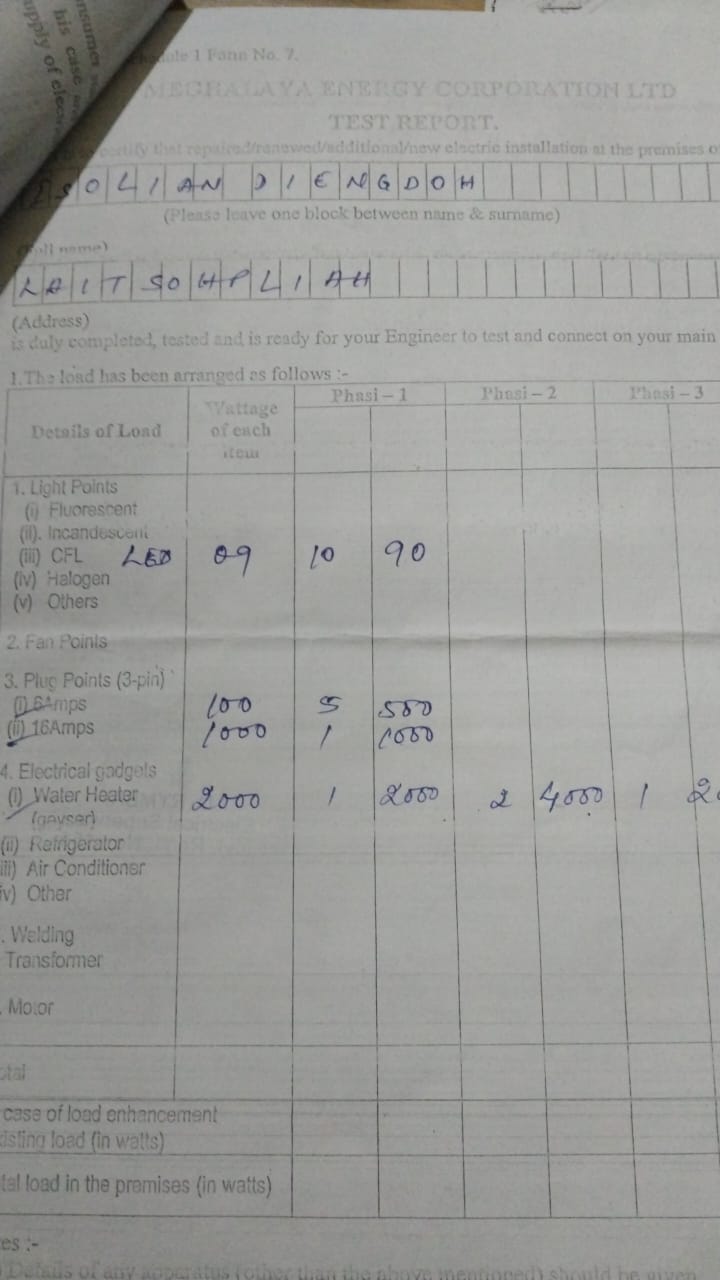 nsumer
his case
upply of elec
dule 1 Form No. 7.
MEGHALAYA ENERGY CORPORATION LTD
TEST REPORT.
certify that repaired/renewed/additional/new electric installation at the premises o
SOLIAN DIENGDOH
(Please leave one block between name & surname)
(Full name)
LAITSOHPLIAH
(Address)
is duly completed, tested and is ready for your Engineer to test and connect on your main
1.The load has been arranged as follows :-
Details of Load Wattage of each item Phasi – 1 Phasi – 2 Phasi – 3
1. Light Points
(i) Fluorescent
(ii). Incandescent
(iii) CFL LED 09 10 90
(iv) Halogen
(v) Others
2. Fan Points
3. Plug Points (3-pin)
(i) 6Amps 100 5 500
(ii) 16Amps 1000 1 1000
4. Electrical gadgets
(i) Water Heater 2000 1 2000 2 4000 1 2
(geyser)
(ii) Refrigerator
iii) Air Conditioner
iv) Other
. Welding
Transformer
. Motor
otal
case of load enhancement
xisting load (in watts)
tal load in the premises (in watts)
es :-
Details of any apparatus (other than the above mentioned) should be given